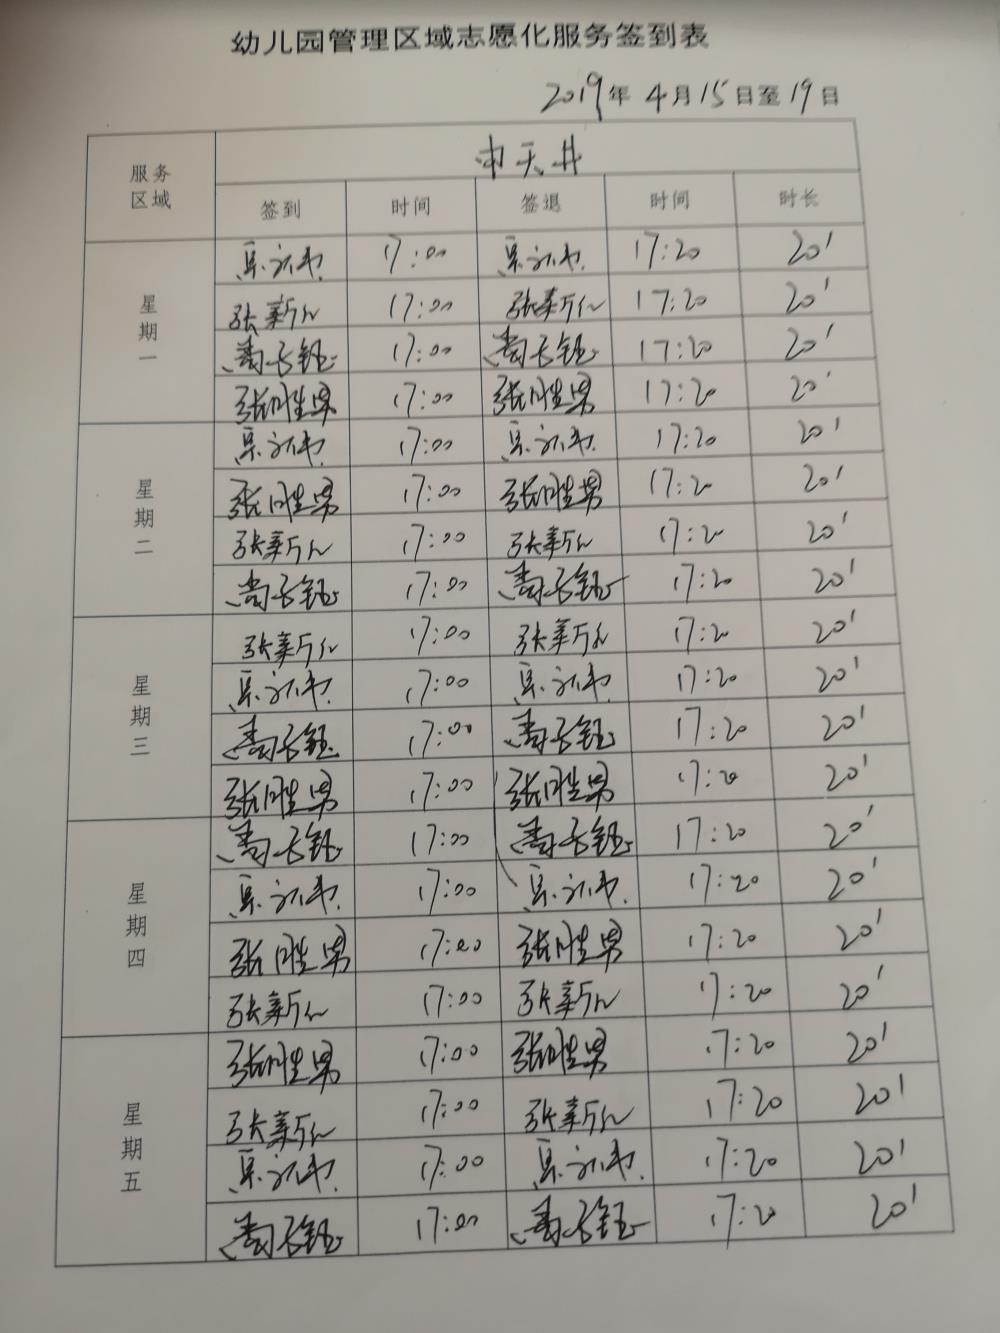 幼儿园管理区域志愿化服务签到表
2019年 4月15日至19日
服务区域 中天井
签到 时间 签退 时间 时长
星期一
17:00 17:20 20'
张新仁 17:00 张新仁 17:20 20'
17:00 17:20 20'
张胜男 17:00 张胜男 17:20 20'
星期二
17:00 17:20 20'
张胜男 17:00 张胜男 17:20 20'
张新仁 17:00 张新仁 17:20 20'
17:00 17:20 20'
星期三
张新仁 17:00 张新仁 17:20 20'
17:00 17:20 20'
17:00 17:20 20'
张胜男 17:00 张胜男 17:20 20'
星期四
17:00 17:20 20'
17:00 17:20 20'
张胜男 17:00 张胜男 17:20 20'
张新仁 17:00 张新仁 17:20 20'
星期五
张胜男 17:00 张胜男 17:20 20'
张新仁 17:00 张新仁 17:20 20'
17:00 17:20 20'
17:00 17:20 20'